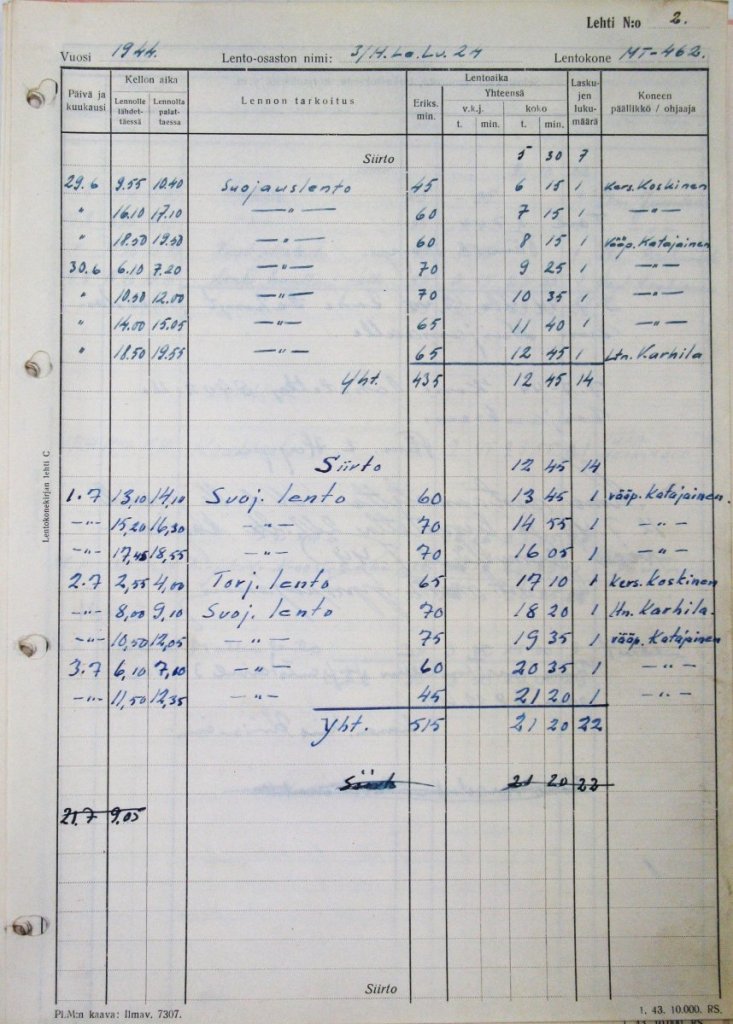 Lehti N:o 2.
Vuosi 1944. Lento-osaston nimi: 3/H.Le.Lv. 24 Lentokone MT-462.
Päivä ja kuukausi Kellon aika Lennolle lähdet-täessä Lennolta palat-taessa Lennon tarkoitus Lentoaika Eriks. min. Yhteensä v.k.j. t. min. koko t. min. Lasku-jen luku-määrä Koneen päällikkö / ohjaaja
Siirto 5 30 7
29.6 9.55 10.40 Suojauslento 45 6 15 1 Kers. Koskinen
" 16.10 17.10 —"— 60 7 15 1 —"—
" 18.50 19.50 —"— 60 8 15 1 Vääp. Katajainen
30.6 6.10 7.20 —"— 70 9 25 1 —"—
" 10.50 12.00 —"— 70 10 35 1 —"—
" 14.00 15.05 —"— 65 11 40 1 —"—
" 18.50 19.55 —"— 65 12 45 1 Ltn. Karhila
Yht. 435 12 45 14
Siirto 12 45 14
1.7 13,10 14,10 Suoj. lento 60 13 45 1 vääp. Katajainen.
—"— 15,20 16,30 —"— 70 14 55 1 —"—
—"— 17,45 18,55 —"— 70 16 05 1 —"—
2.7 2,55 4,00 Torj. lento 65 17 10 1 Kers. Koskinen
—"— 8,00 9,10 Suoj. lento 70 18 20 1 ltn. Karhila.
—"— 10,50 12,05 —"— 75 19 35 1 vääp. Katajainen
3.7 6,10 7,10 —"— 60 20 35 1 —"—
—"— 11,50 12,35 —"— 45 21 20 1 —"—
Yht. 515 21 20 22
Siirto 21 20 22
21.7 9.05
Siirto
Lentokonekirjan lehti C
Pl.M:n kaava: Ilmav. 7307. 1. 43. 10.000. RS.
1. 43. 10.000. RS.